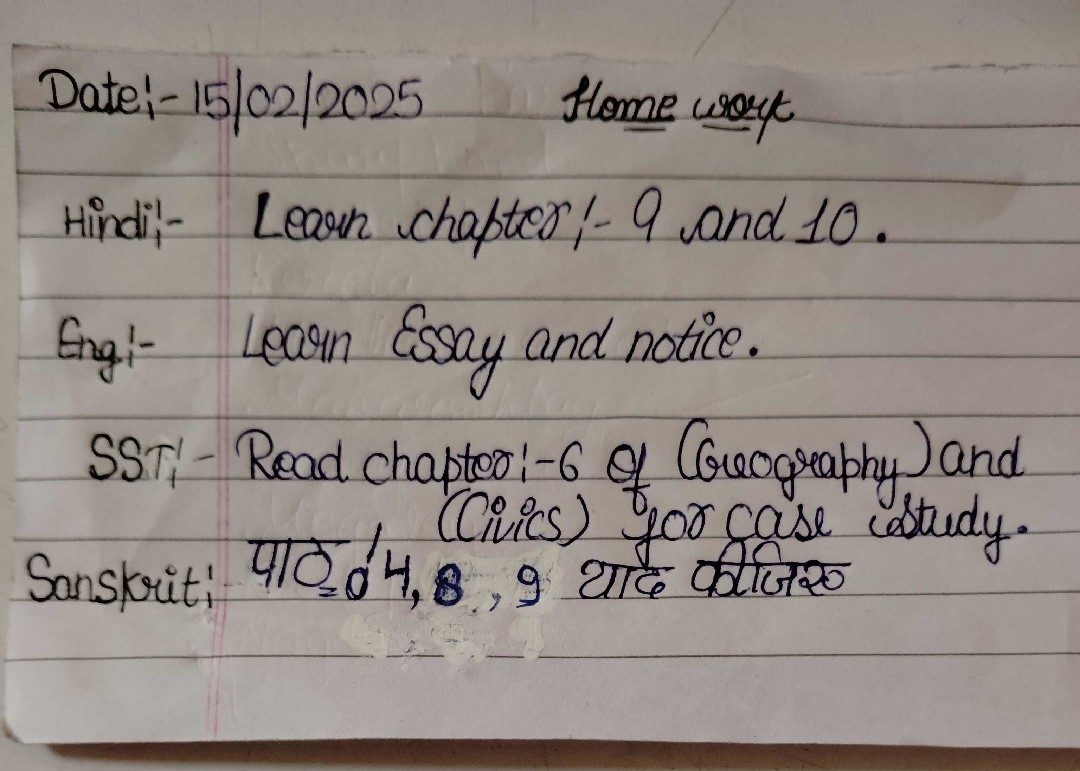 Date:- 15/02/2025 Home work
Hindi:- Learn chapter:- 9 and 10.
Eng:- Learn Essay and notice.
SST:- Read chapter:-6 of (Geography) and
(Civics) for case study.
Sanskrit:- पाठ 4, 8, 9 याद कीजिए